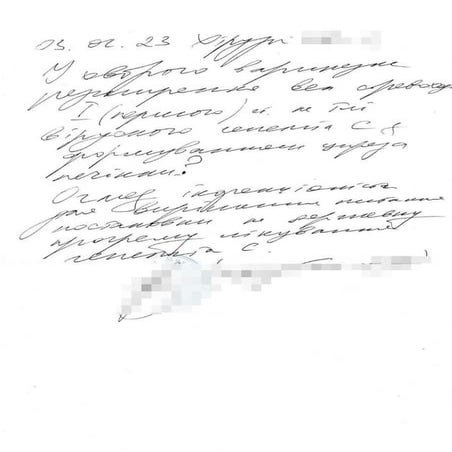 03. 01. 23 Хірург
У хворого варикозне
розширення вен стравох
I (першого) ст. на тлі
вірусного гепатита С з
формуванням цироза
печінки?
Огляд інфекціоніста
для вирішення питання
постановки на державну
програму лікування
гепатита С.